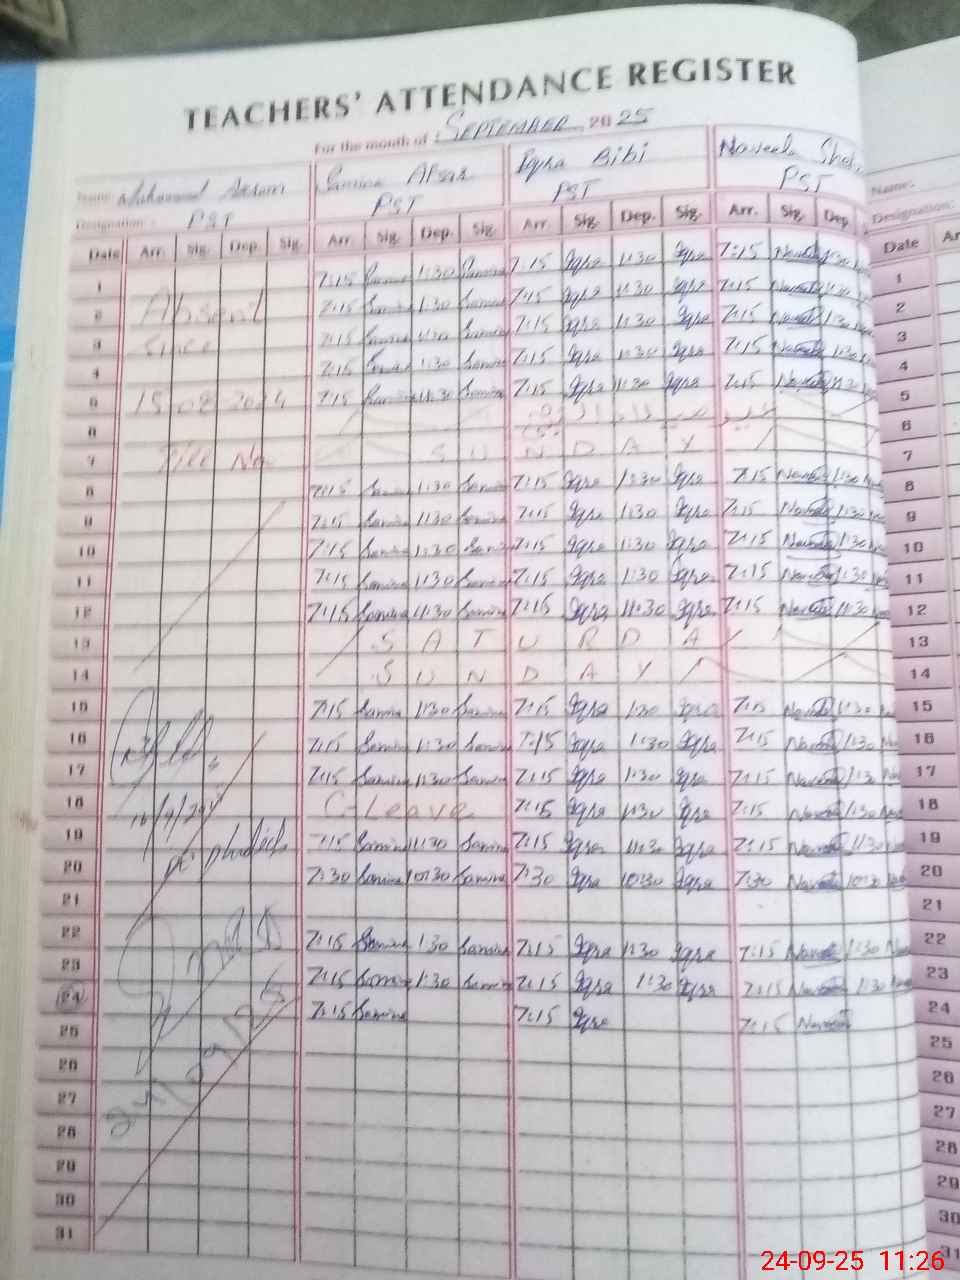 TEACHERS' ATTENDANCE REGISTER
For the month of : SEPTEMBER 2025
Name Muhammad Akram Samina Afsar Iqra Bibi Naveela
Designation : PST PST PST PST
Name:
Designation:
Date Arr. Sig. Dep. Sig. Arr. Sig. Dep. Sig. Arr. Sig. Dep. Sig. Arr. Sig. Dep Date Ar
1 7:15 Samina 1:30 Samina 7:15 Iqra 1:30 Iqra 7:15 1:30 1
2 Absent 7:15 Samina 1:30 Samina 7:15 Iqra 1:30 Iqra 7:15 1:30 2
3 Since 7:15 Samina 1:30 Samina 7:15 Iqra 1:30 Iqra 7:15 1:30 3
4 7:15 Samina 1:30 Samina 7:15 Iqra 1:30 Iqra 7:15 1:30 4
5 15-08-2024 7:15 Samina 11:30 Samina 7:15 Iqra 11:30 Iqra 7:15 11:30 5
6 6
7 Till Now SUNDAY 7
8 7:15 Samina 1:30 Samina 7:15 Iqra 1:30 Iqra 7:15 1:30 8
9 7:15 Samina 1:30 Samina 7:15 Iqra 1:30 Iqra 7:15 1:30 9
10 7:15 Samina 1:30 Samina 7:15 Iqra 1:30 Iqra 7:15 1:30 10
11 7:15 Samina 1:30 Samina 7:15 Iqra 1:30 Iqra 7:15 1:30 11
12 7:15 Samina 11:30 Samina 7:15 Iqra 11:30 Iqra 7:15 11:30 12
13 SATURDAY 13
14 SUNDAY 14
15 7:15 Samina 1:30 Samina 7:15 Iqra 1:30 Iqra 7:15 1:30 15
16 7:15 Samina 1:30 Samina 7:15 Iqra 1:30 Iqra 7:15 1:30 16
17 7:15 Samina 1:30 Samina 7:15 Iqra 1:30 Iqra 7:15 1:30 17
18 C-Leave 7:15 Iqra 1:30 Iqra 7:15 1:30 18
19 7:15 Samina 11:30 Samina 7:15 Iqra 11:30 Iqra 7:15 11:30 19
20 7:30 Samina 10:30 Samina 7:30 Iqra 10:30 Iqra 7:30 10:30 20
21 21
22 7:15 Samina 1:30 Samina 7:15 Iqra 1:30 Iqra 7:15 1:30 22
23 7:15 Samina 1:30 Samina 7:15 Iqra 1:30 Iqra 7:15 1:30 23
24 7:15 Samina 7:15 Iqra 7:15 24
25 24/09/25 25
26 26
27 27
28 28
29 29
30 30
31 31
24-09-25 11:26